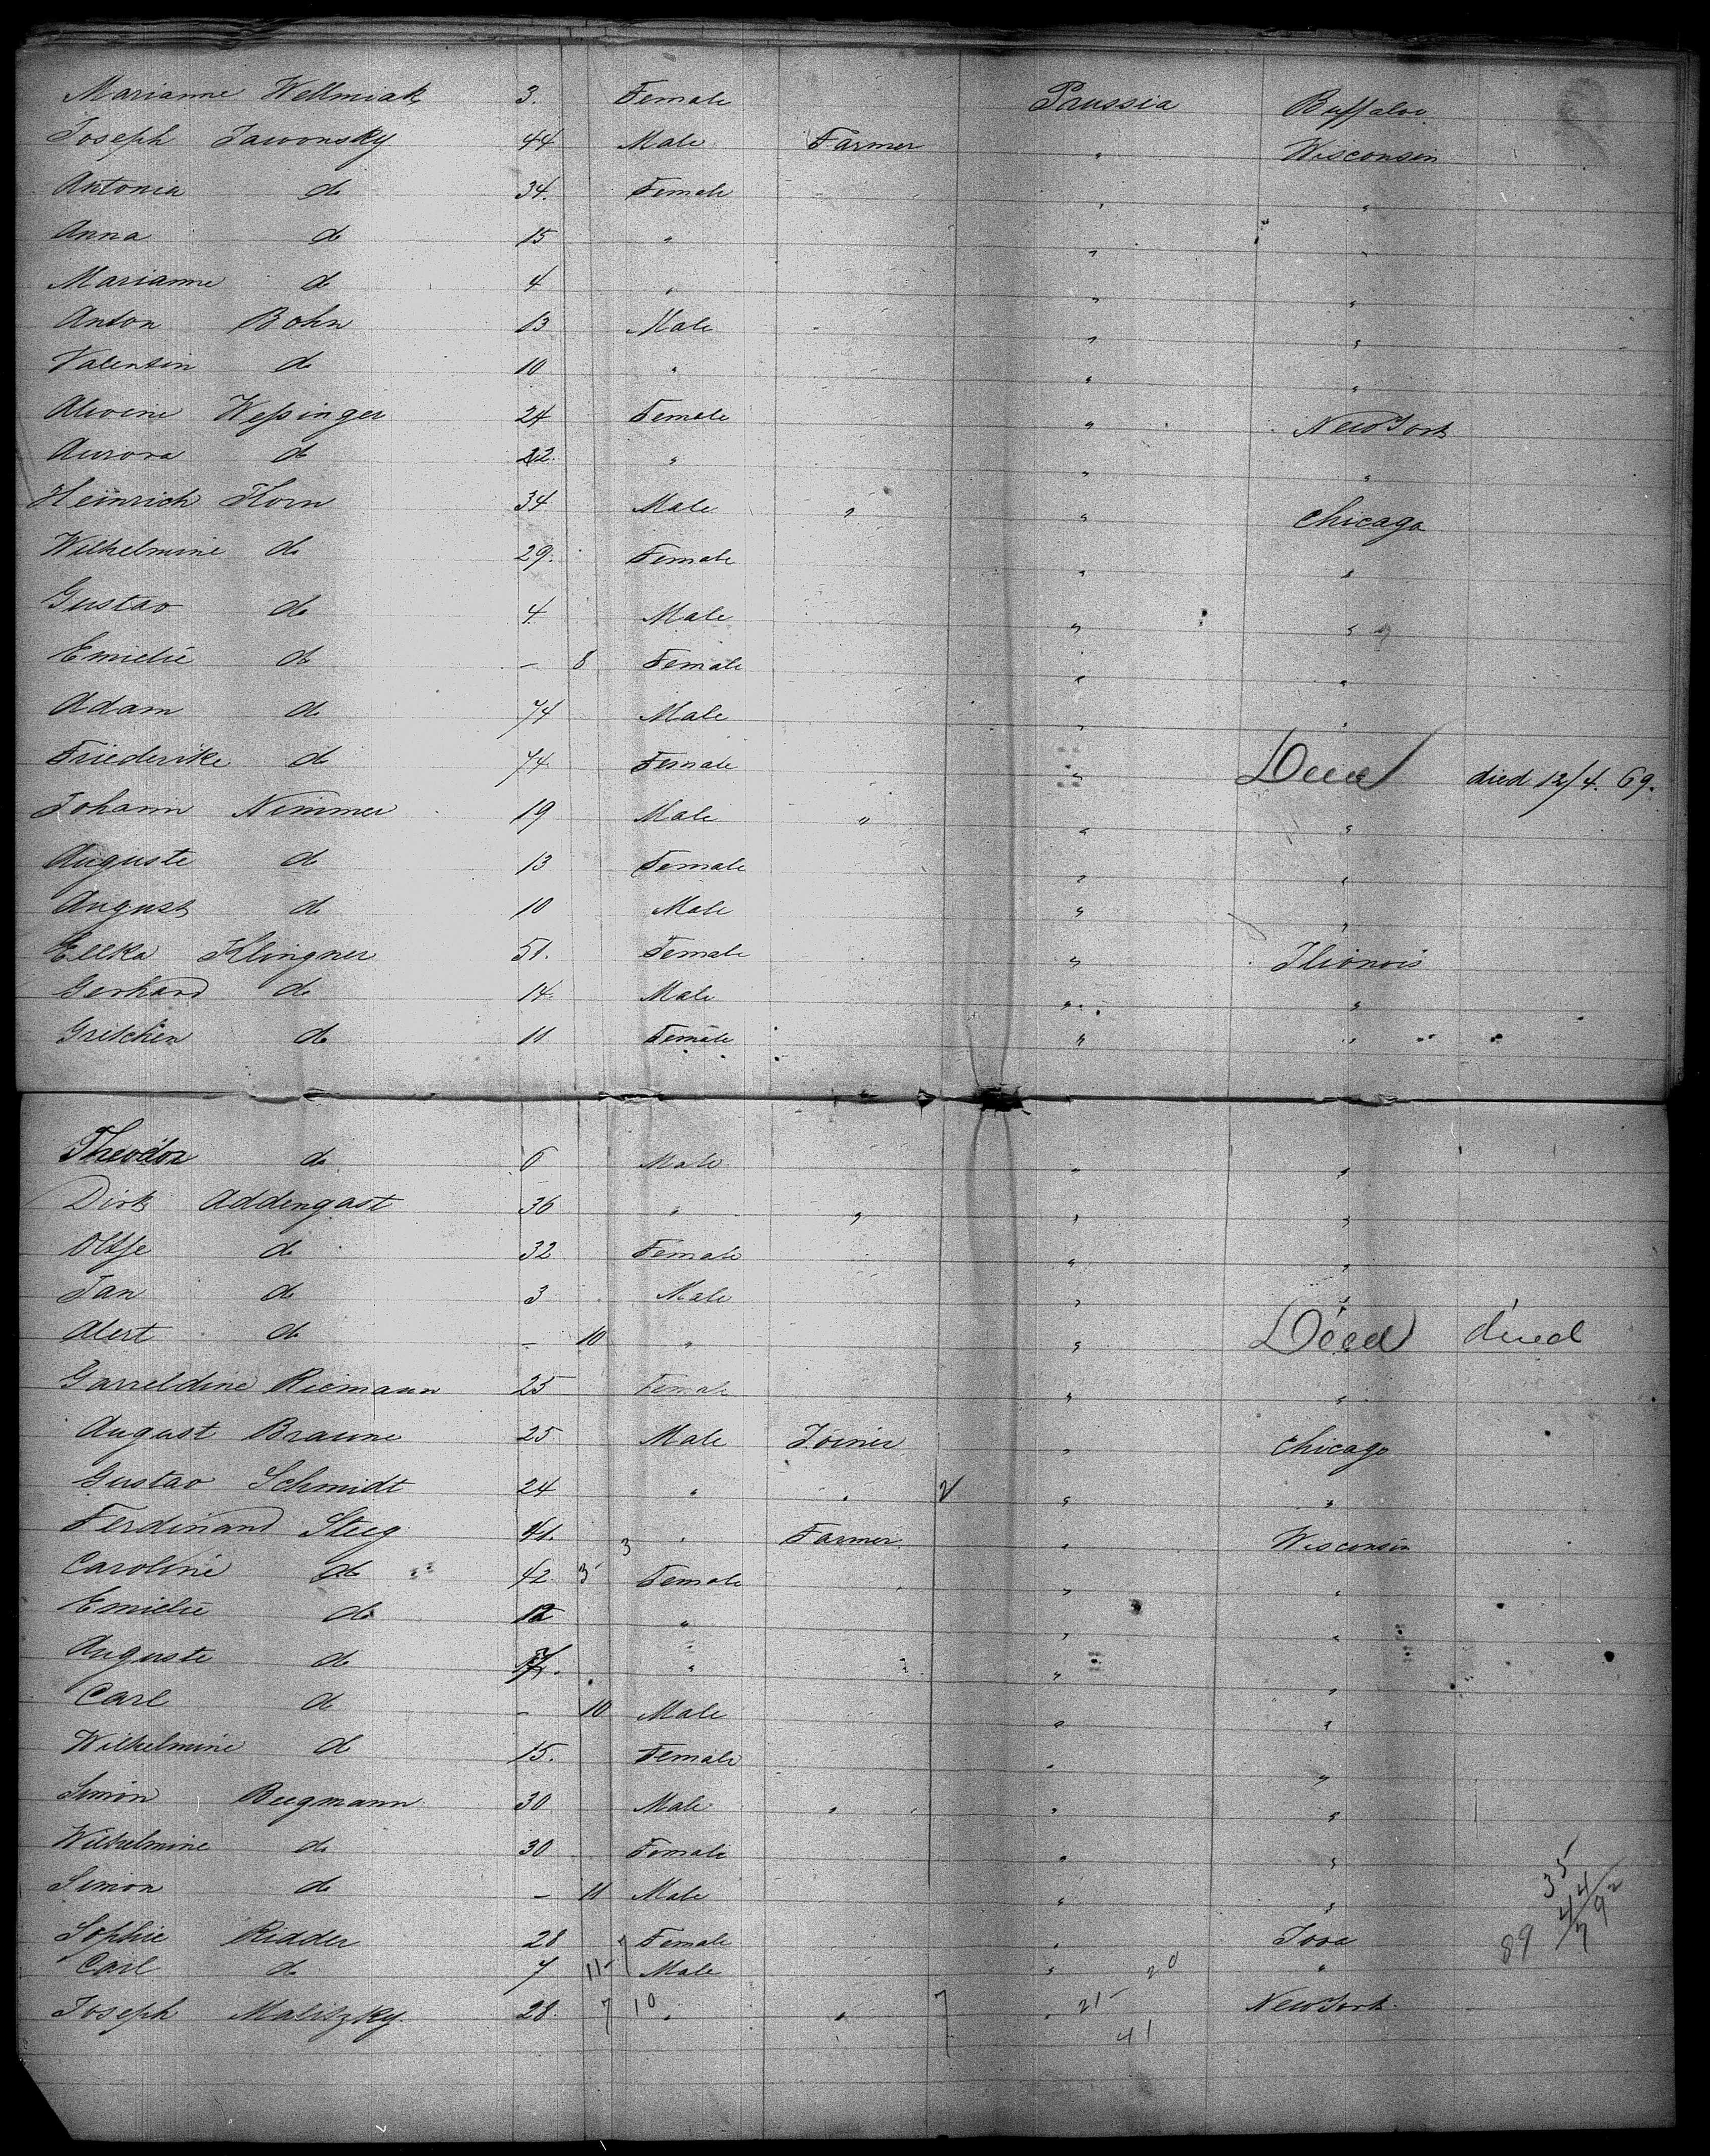 Marianne Wellmiak 3. Female Prussia Buffaloe
Joseph Jawonsky 44 Male Farmer " Wisconsin
Antonia do 34. Female " "
Anna do 15 " " "
Marianne do 4 " " "
Anton Bohn 13 Male " "
Valentin do 10 " " "
Alwine Weßinger 24 Female " New York
Aurora do 22. " " "
Heinrich Horn 34 Male " " Chicago
Wilhelmine do 29. Female " "
Gustav do 4. Male " "
Emielie do – 8 Female " "
Adam do 74 Male " "
Friederike do 74. Female " Deed died 12/4. 69.
Johann Nimmer 19 Male " " "
Auguste do 13 Female " "
August do 10 Male " "
Elka Klingner 51. Female " Ilionois
Gerhard do 14. Male " "
Gretchen do 11 Female " "
Theodor do 6 Male " "
Dirk Addengast 36 " " " "
Oltje do 32 Female " "
Jan do 3 Male " "
Alert do – 10 " " Deed died
Garreldine Riemann 25 Female " "
August Braune 25 Male Joiner " Chicago
Gustav Schmidt 24 " " 2 " "
Ferdinand Steeg 41. 3 " Farmer " Wisconsin
Caroline do 42. 3 Female " "
Emielie do 12 " " "
Auguste do " " "
Carl do – 10 Male " "
Wilhelmine do 15. Female " "
Simon Bergmann 30 Male " " "
Wilhelmine do 30 Female " "
Simon do – 11 Male " "
35
44
Sophie Ridder 28 7 Female " Iova 89 79 2
Carl do 7 11 Male " 20 "
Joseph Malitzky 28. 7 10 " " 7 " 21 New York
41